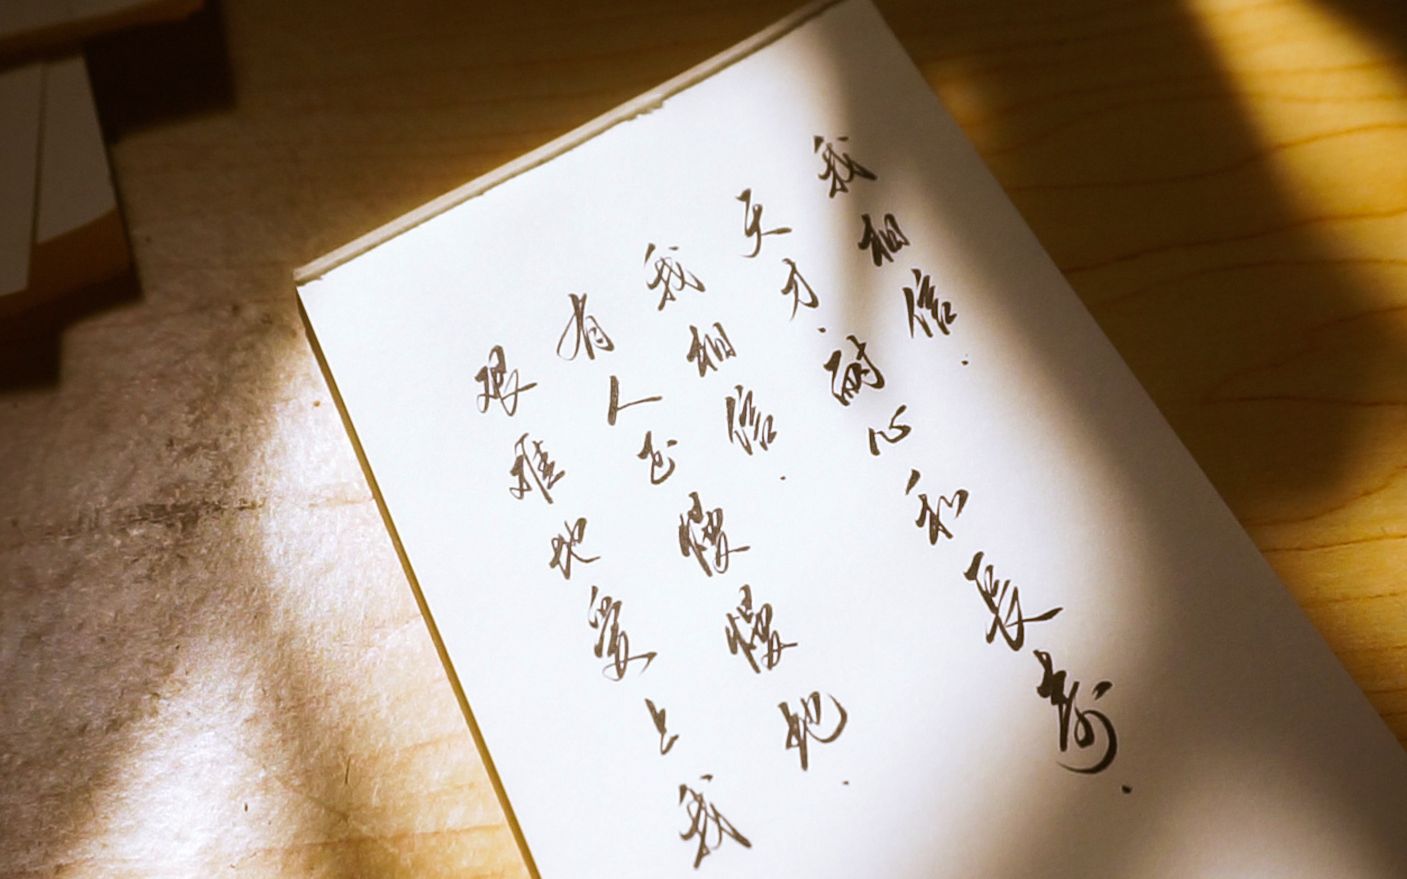 我相信.
天才.耐心和长寿.
我相信.
有人正慢慢地.
艰难地爱上我